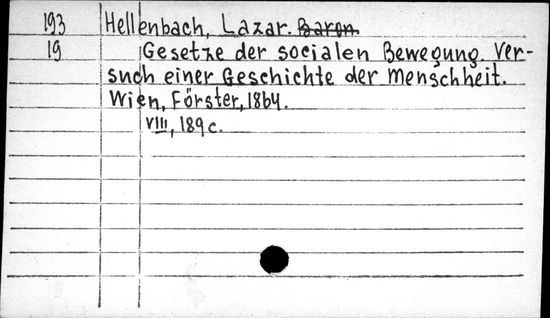 193 Hellenbach, Lazar. Baron.
19 Gesetze der socialen Bewegung. Ver-
such einer Geschichte der Menschheit.
Wien, Förster, 1864.
VIII, 189 c.